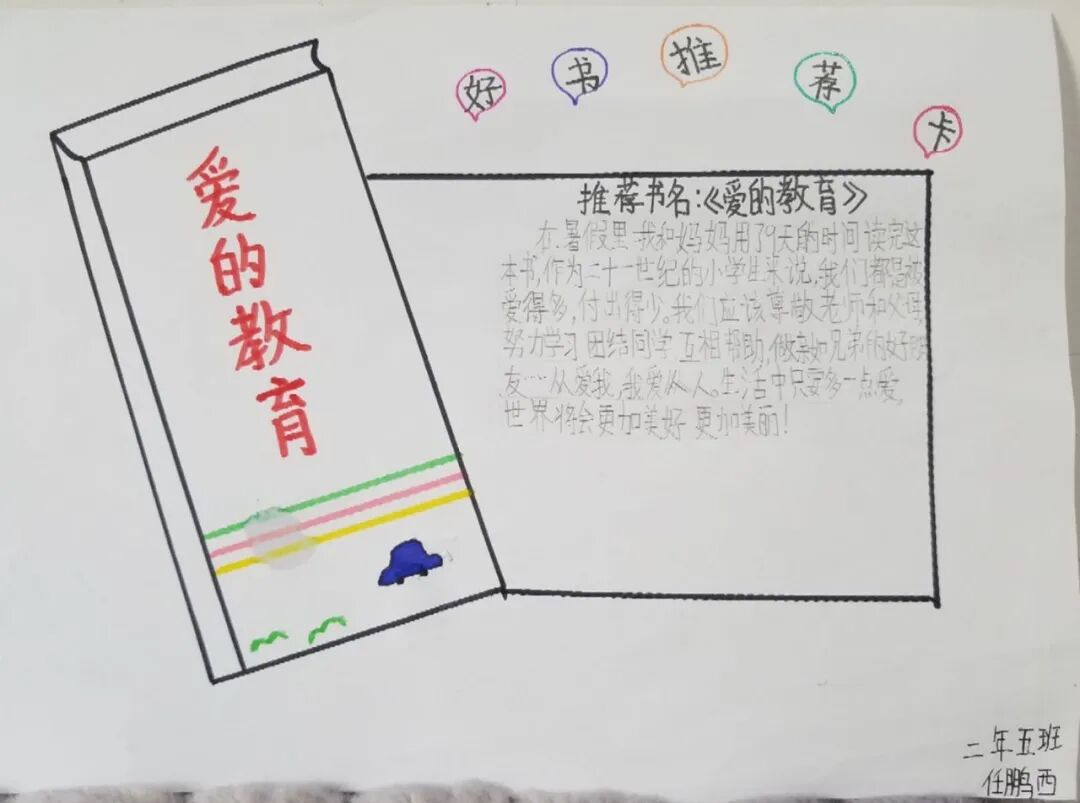 好书推荐卡
爱的教育
推荐书名:《爱的教育》
在暑假里我和妈妈用了9天的时间读完这
本书,作为二十一世纪的小学生来说,我们都是被
爱得多,付出得少。我们应该尊敬老师和父母,
努力学习 团结同学 互相帮助,做亲如兄弟的好朋
友…从爱我,我爱从人。生活中只要多一点爱,
世界将会更加美好 更加美丽!
二年五班
任鹏西